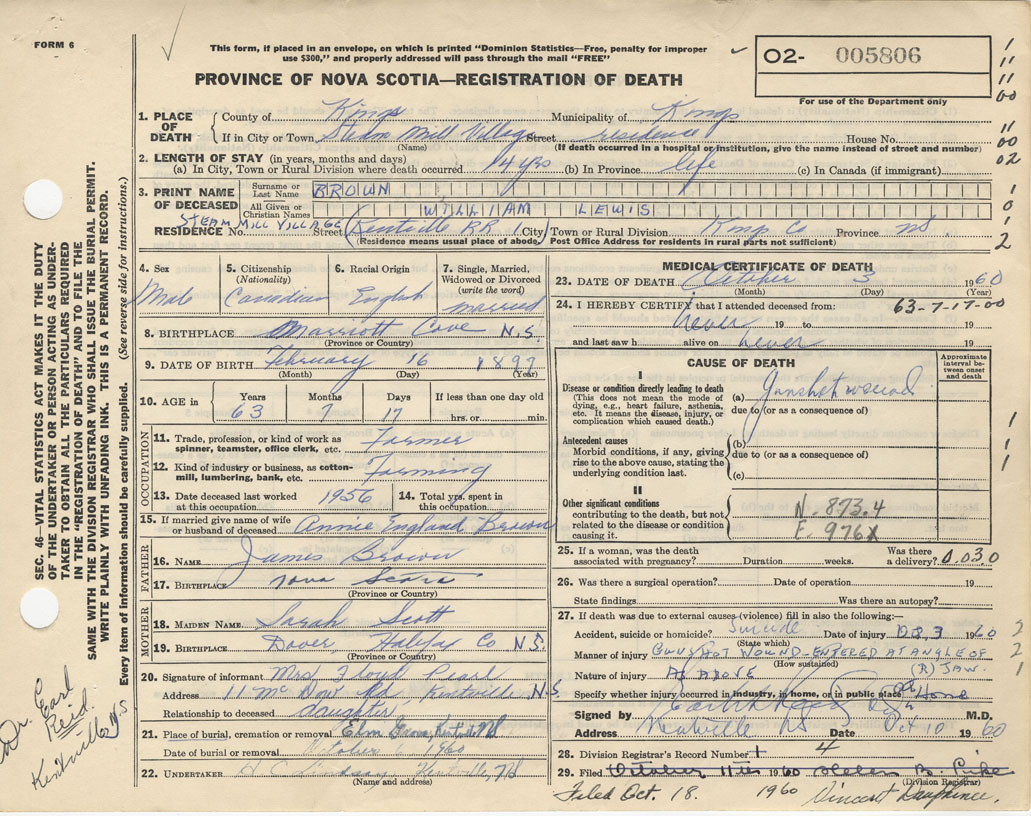 FORM 6
This form, if placed in an envelope, on which is printed "Dominion Statistics—Free, penalty for improper
use $300," and properly addressed will pass through the mail "FREE"
PROVINCE OF NOVA SCOTIA—REGISTRATION OF DEATH
O2- 005806
For use of the Department only
1. PLACE OF DEATH
County of Kings Municipality of Kings
If in City or Town Steam Mill Village Street residence House No.
(Name) (If death occurred in a hospital or institution, give the name instead of street and number)
2. LENGTH OF STAY (in years, months and days)
(a) In City, Town or Rural Division where death occurred 14 yrs (b) In Province life (c) In Canada (if immigrant)
3. PRINT NAME OF DECEASED
Surname or Last Name BROWN
All Given or Christian Names WILLIAM LEWIS
STEAM MILL VILLAGE
RESIDENCE No. Street (Kentville RR 1 City) Town or Rural Division Kings Co Province NS.
(Residence means usual place of abode. Post Office Address for residents in rural parts not sufficient)
4. Sex
Male
5. Citizenship (Nationality)
Canadian
6. Racial Origin
English
7. Single, Married, Widowed or Divorced (write the word)
married
8. BIRTHPLACE Marriott Cove N.S.
(Province or Country)
9. DATE OF BIRTH February 16 1897
(Month) (Day) (Year)
10. AGE in Years Months Days If less than one day old
63 7 17 hrs. or min.
OCCUPATION
11. Trade, profession, or kind of work as spinner, teamster, office clerk, etc. Farmer
12. Kind of industry or business, as cotton-mill, lumbering, bank, etc. Farming
13. Date deceased last worked at this occupation 1956
14. Total yrs. spent in this occupation
15. If married give name of wife or husband of deceased Annie England Brown
FATHER
16. NAME James Brown
17. BIRTHPLACE Nova Scotia
(Province or Country)
MOTHER
18. MAIDEN NAME Sarah Scott
19. BIRTHPLACE Dover Halifax Co N.S.
(Province or Country)
20. Signature of informant Mrs Floyd Pearl
Address Kentville N.S
Relationship to deceased daughter
21. Place of burial, cremation or removal Elm Grove, Kentville NS
Date of burial or removal October 1960
22. UNDERTAKER H C Lindsay Kentville, NS
(Name and address)
MEDICAL CERTIFICATE OF DEATH
23. DATE OF DEATH October 3 1960
(Month) (Day) (Year)
63-7-17-00
24. I HEREBY CERTIFY that I attended deceased from:
never 19 to 19
and last saw h alive on never 19
CAUSE OF DEATH
Approximate interval between onset and death
I
Disease or condition directly leading to death (a) Gunshot wound
(This does not mean the mode of dying, e.g., heart failure, asthenia, etc. It means the disease, injury, or complication which caused death.)
due to (or as a consequence of)
Antecedent causes (b)
Morbid conditions, if any, giving rise to the above cause, stating the underlying condition last.
due to (or as a consequence of)
(c)
II
Other significant conditions contributing to the death, but not related to the disease or condition causing it.
N. 873.4
E. 976X
25. If a woman, was the death associated with pregnancy? Duration weeks. Was there a delivery? 0.030
26. Was there a surgical operation? Date of operation 19
State findings Was there an autopsy?
27. If death was due to external causes (violence) fill in also the following:—
Accident, suicide or homicide? Suicide Date of injury 3 1960
(State which)
Manner of injury GUNSHOT WOUND ENTERED AT ANGLE OF
(How sustained) (R) JAW.
Nature of injury AS ABOVE
Specify whether injury occurred in industry, in home, or in public place Home
Signed by M.D.
Address Kentville NS Date Oct 10 1960
28. Division Registrar's Record Number 4
29. Filed October 11th 1960 Helen B. Pike
(Division Registrar)
Filed Oct. 18. 1960 Vincent Dauphinee.
SEC. 46—VITAL STATISTICS ACT MAKES IT THE DUTY
OF THE UNDERTAKER OR PERSON ACTING AS UNDER-
TAKER TO OBTAIN ALL THE PARTICULARS REQUIRED
IN THE "REGISTRATION OF DEATH" AND TO FILE THE
SAME WITH THE DIVISION REGISTRAR WHO SHALL ISSUE THE BURIAL PERMIT.
WRITE PLAINLY WITH UNFADING INK. THIS IS A PERMANENT RECORD.
Every item of information should be carefully supplied. (See reverse side for instructions.)
Dr. Earl
Reid.
Kentville NS